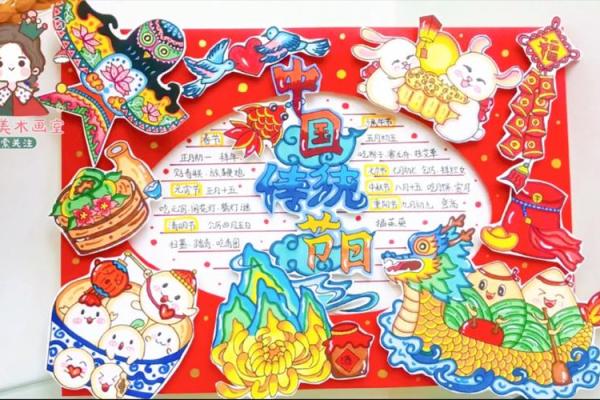 美术画室
索关注
中国
传统
节日
春节
正月初一 拜年
贴春联 放鞭炮
元宵节 正月十五
吃元宵 闹花灯 猜灯谜
清明节 公历四月五日
扫墓 踏青 吃青团
端午节
五月初五
吃粽子 赛龙舟 挂艾草
七夕节 七月初七 乞巧 拜织女
中秋节 八月十五 吃月饼 赏月
重阳节 九月初九 登高
插茱萸
福
酒